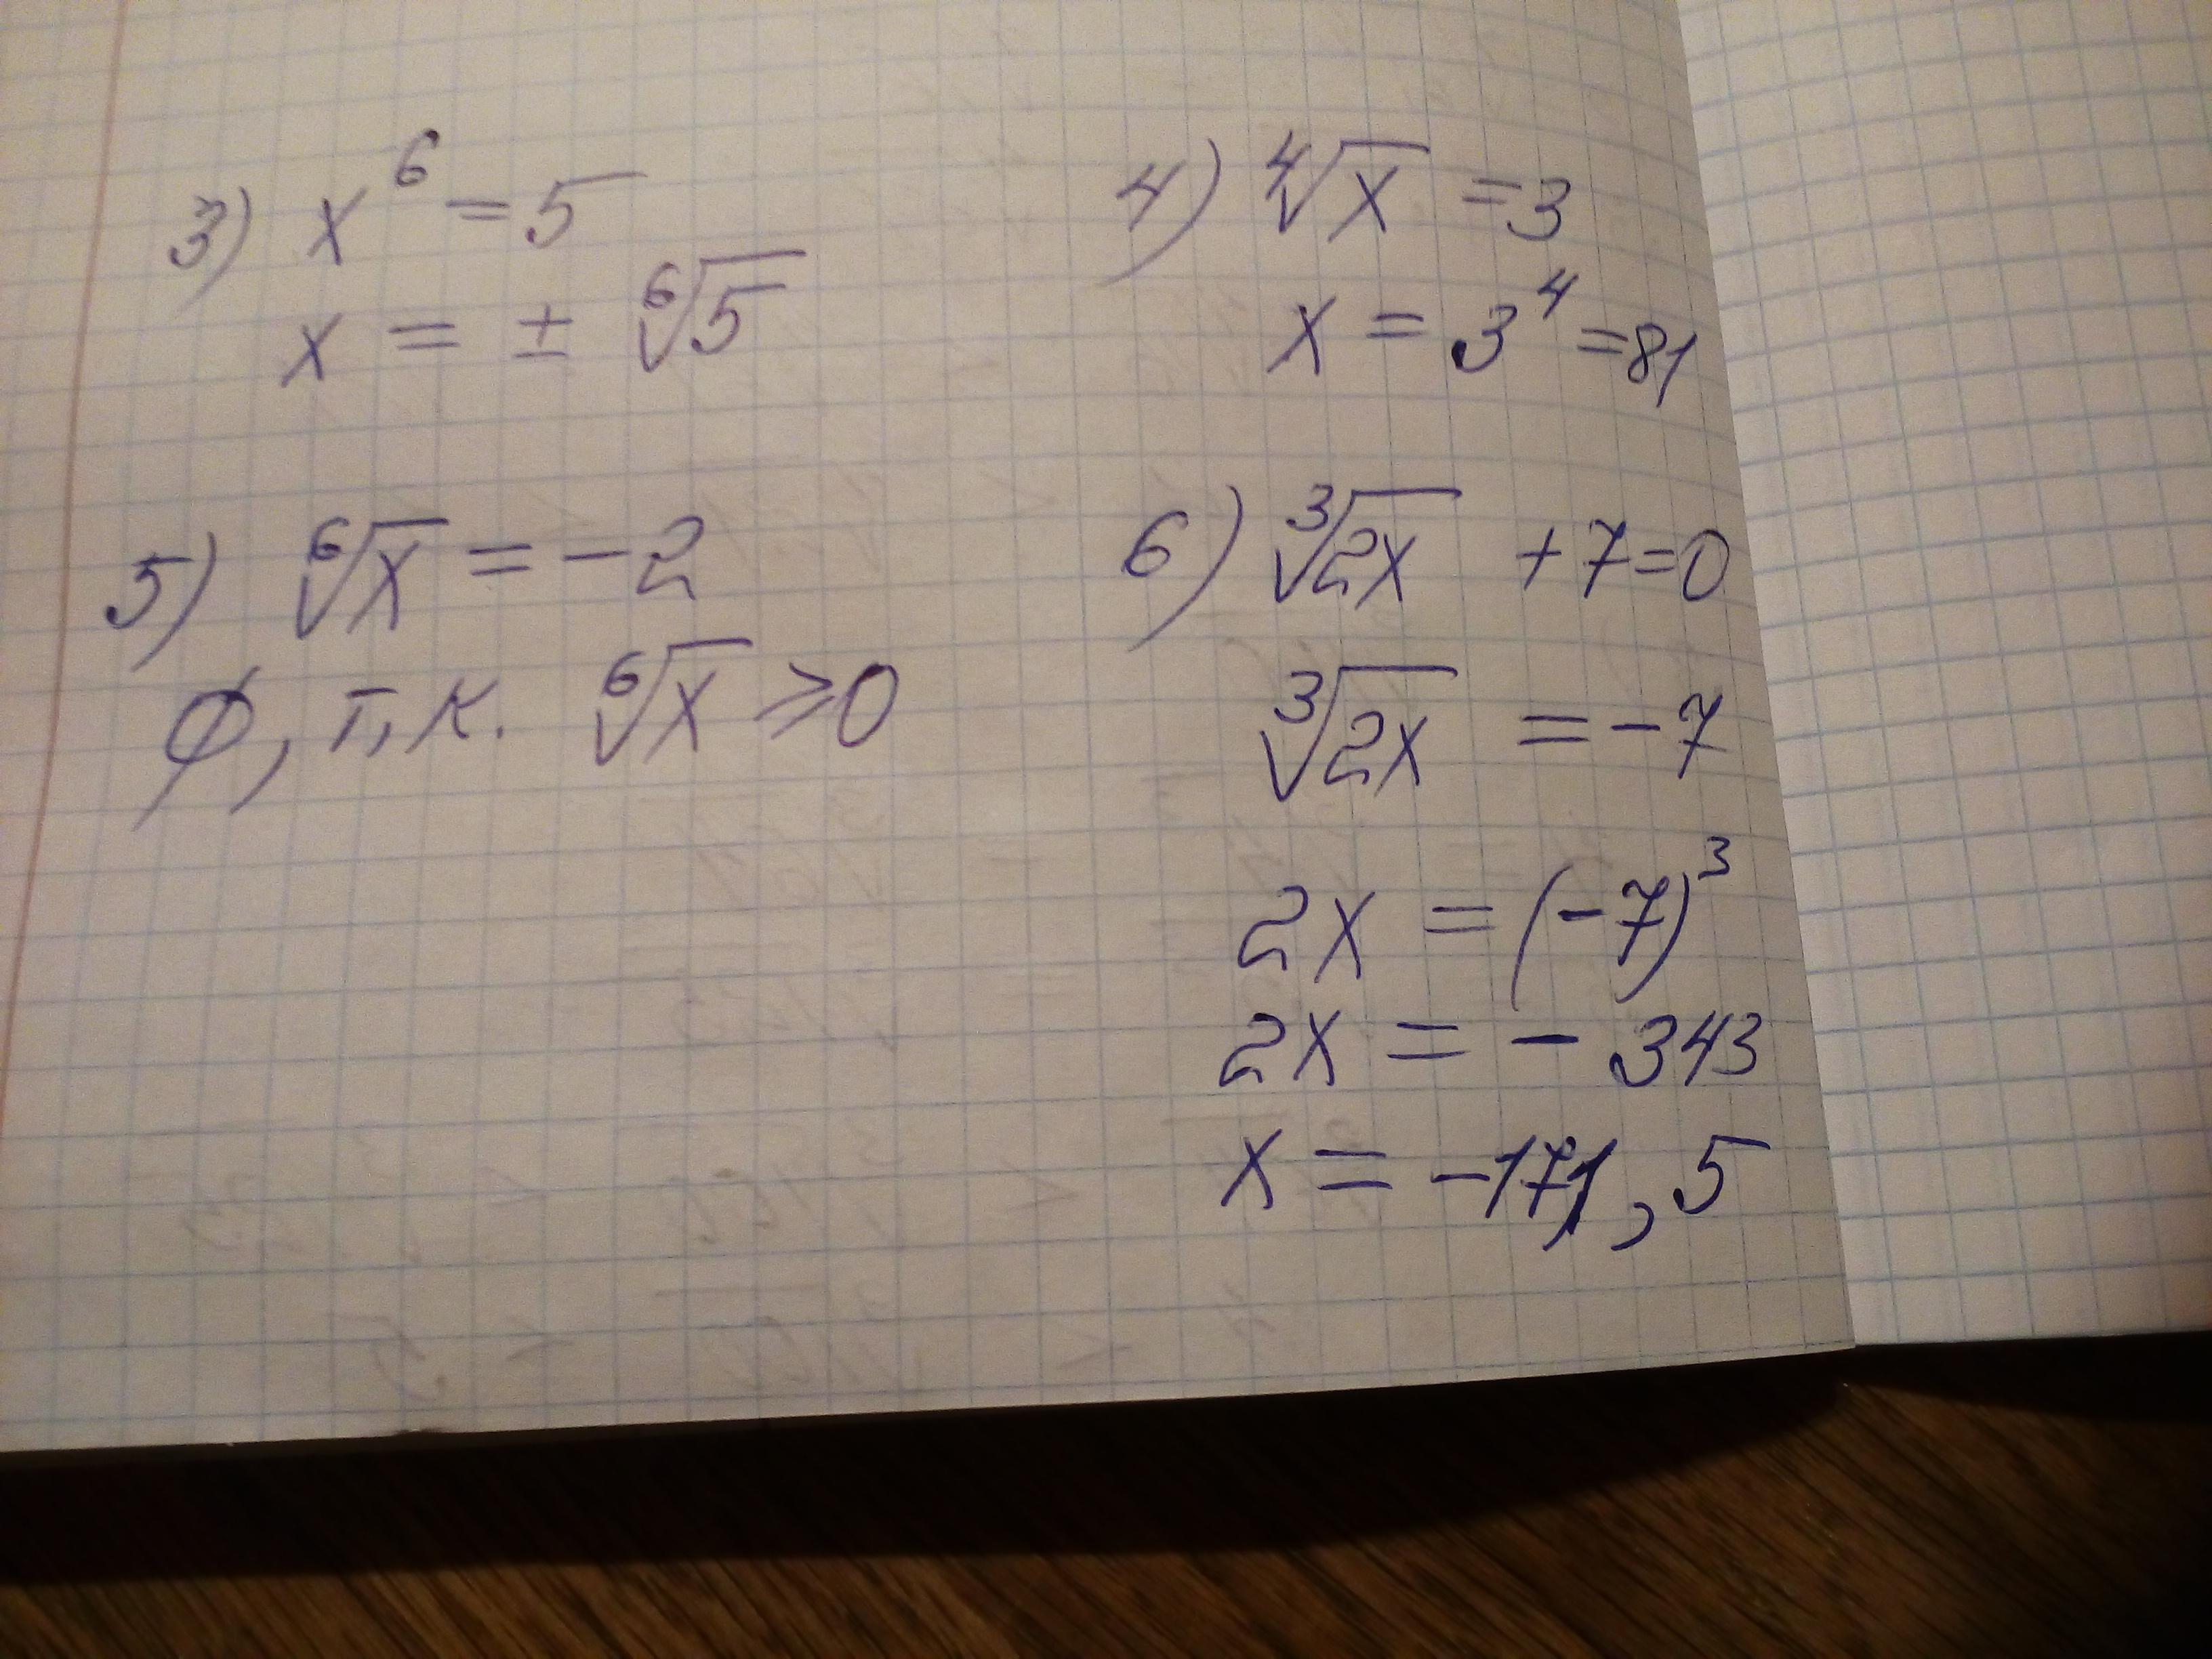 3) x⁶ = 5
x = ± ⁶√5
4) ⁴√x = 3
x = 3⁴ = 81
5) ⁶√x = -2
∅, т.к. ⁶√x ⩾ 0
6) ³√2x + 7 = 0
³√2x = -7
2x = (-7)³
2x = - 343
x = -171,5